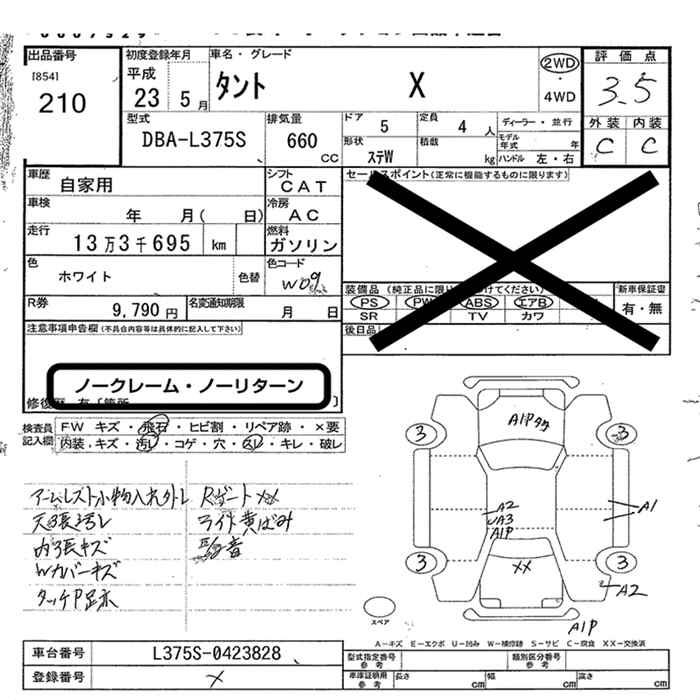 出品番号 初度登録年月 車名・グレード 評価点
[854] 平成 2WD
210 23 5月 タント X 4WD 3.5
型式 排気量 ドア 5 定員 4人 ディーラー・並行 外装 内装
DBA-L375S 660CC 形状 ステW 積載 kg モデル年式 年 C C
ハンドル 左・右
車歴 自家用 シフト CAT セールスポイント(正常に機能するものに限ります)
車検 年 月( 日) 冷房 AC
走行 13万3千695km 燃料 ガソリン
色 ホワイト 色替 色コード W09 装備品 新車保証書
PS PW ABS エアB 有・無
R券 9,790円 名変通知期限 月 日 SR TV カワ
注意事項申告欄(不具合内容等は具体的に記入して下さい) 後日品
ノークレーム・ノーリターン
検査員記入欄 FW キズ・飛石・ヒビ割・リペア跡・×要
内装.キズ・汚レ・コゲ・穴・スレ・キレ・破レ
アームレスト小物入れ外レ Rゲート××
天張汚レ ライト黄ばみ
内張キズ
Wカバーキズ
タッチP足赤
A1P
3 3
A2 A1
A3
A1P
3 ×× 3
A2
スペア A1P
A-キズ E-エクボ U-凹み W-補修跡 S-サビ C-腐食 XX-交換済
車台番号 L375S-0423828 型式指定番号参考 類別区分番号参考
登録番号 × 車庫証明用参考 長さ cm 幅 cm 高さ cm